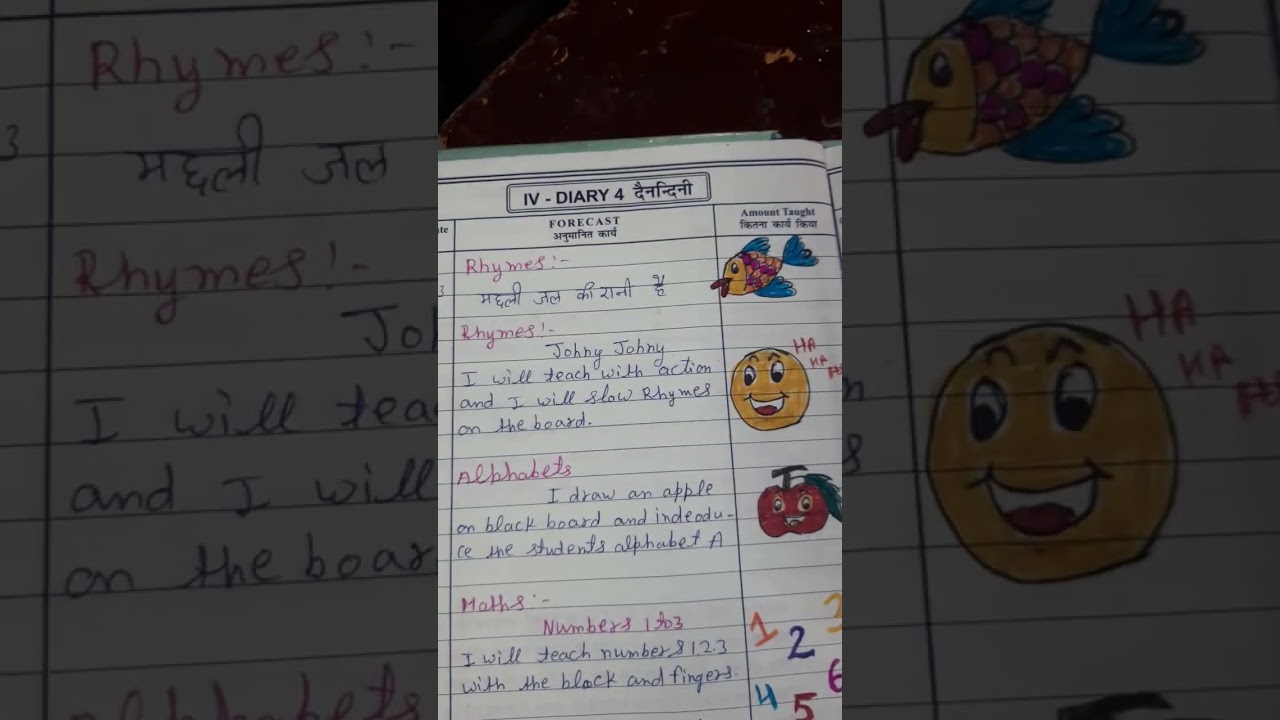 IV - DIARY 4 दैनन्दिनी
FORECAST
अनुमानित कार्य
Amount Taught
कितना कार्य किया
Rhymes:-
मछली जल की रानी है
Rhymes:-
Johny Johny
I will teach with action
and I will slow Rhymes
on the board.
HA
HA
Alphabets
I draw an apple
on black board and indeodu-
ce the students alphabet A
Maths:-
Numbers 1 to 3
I will teach numbers 1.2.3
with the block and fingers.
1 2 3
4 5 6